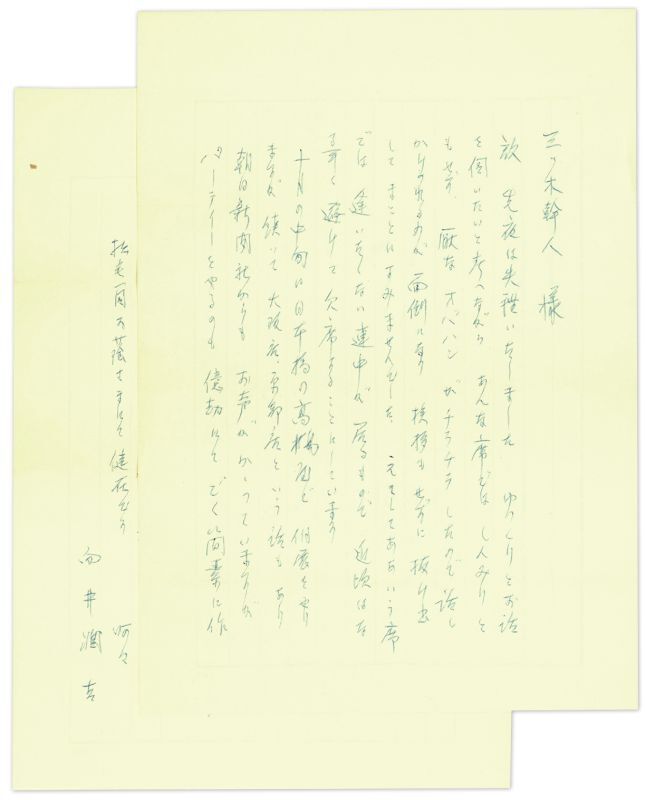 三ツ木幹人 様
故 先夜は失礼いたしました ゆっくりとお話
を伺いたいと考へながら あんな席では しんみりと
もせず、厭な オバハン がチラチラしたので 話し
かけられるのが面倒になり 挨拶もせずに 抜け出
してまことにすみませんでした、えてしてああいう席
では 逢いたくない連中が 居るもので 近頃はな
るべく 避けて欠席することにしています
十月の中旬に日本橋の高島屋で 個展をやり
ますが 続いて 大阪店、京都店という話もあり
朝日新聞社からも お声がかかっていますが
パーティーをやるのも 億劫にて ごく簡素に作
拙宅一同お蔭さまにて 健在なり
呵々
向井潤吉